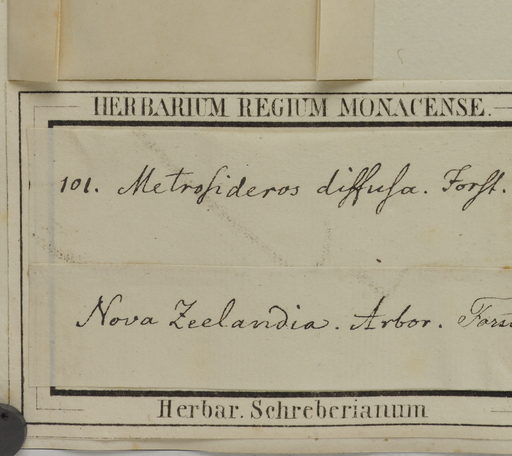 HERBARIUM REGIUM MONACENSE.
101. Metrosideros diffusa. Forst.
Nova Zeelandia. Arbor. Forst
Herbar. Schreberianum